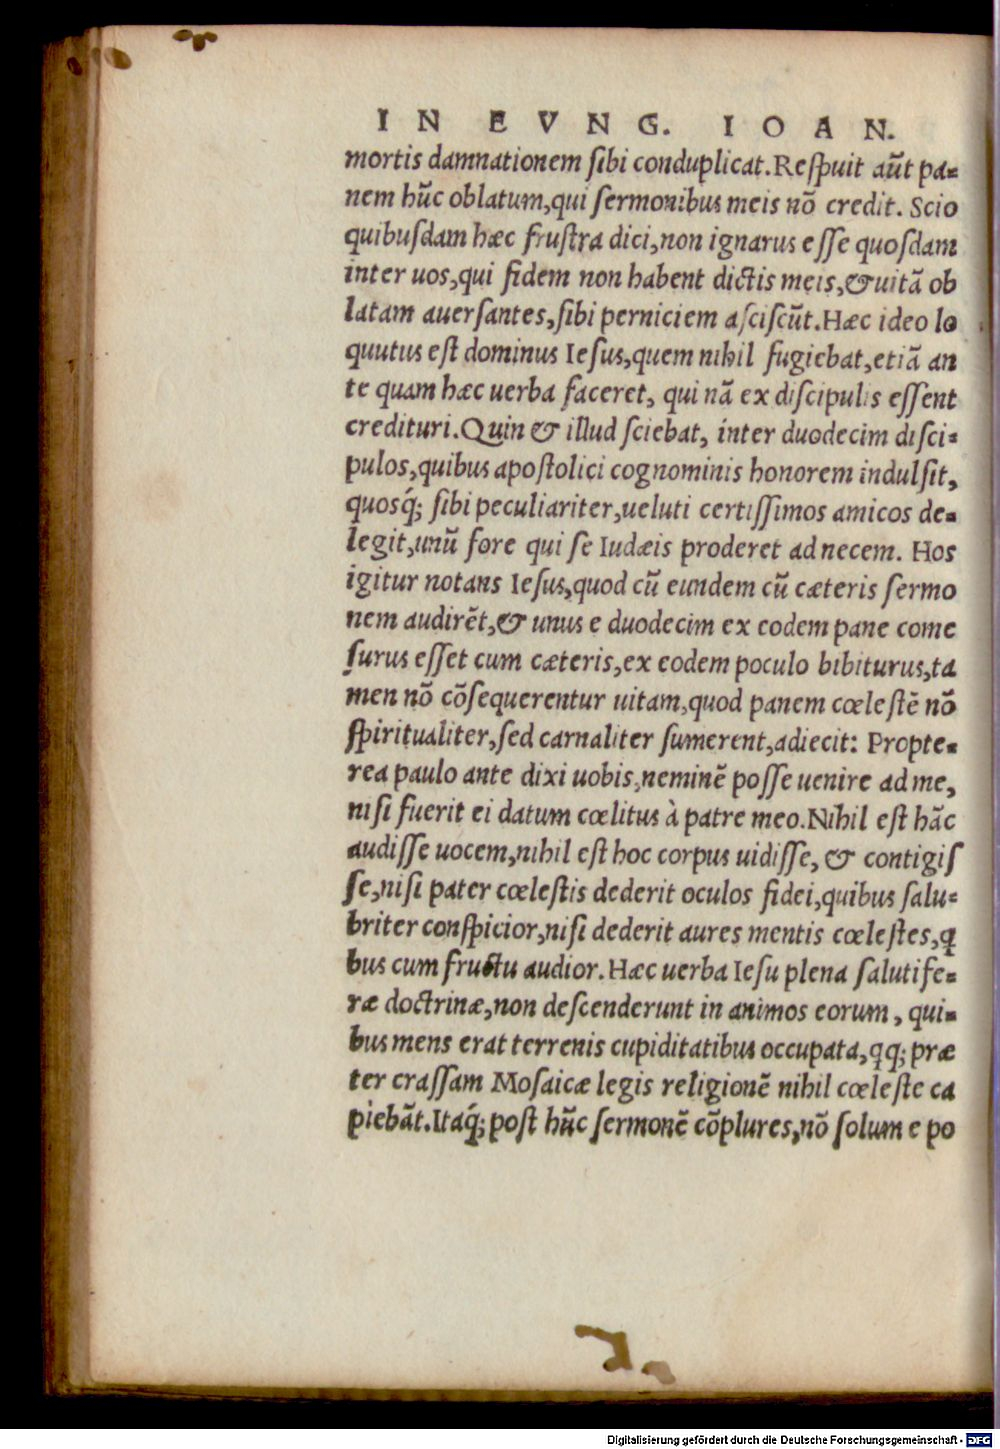 IN EVNG. IOAN.
mortis damnationem ſibi conduplicat. Reſpuit aūt pa-
nem hūc oblatum, qui ſermonibus meis nō credit. Scio
quibuſdam hæc fruſtra dici, non ignarus eſſe quoſdam
inter uos, qui fidem non habent dictis meis, & uitā ob
latam auerſantes, ſibi perniciem aſciſcūt. Hæc ideo lo
quutus eſt dominus Ieſus, quem nihil fugiebat, etiā an
te quam hæc uerba faceret, qui nā ex diſcipulis eſſent
credituri. Quin & illud ſciebat, inter duodecim diſci-
pulos, quibus apoſtolici cognominis honorem indulſit,
quosq́; ſibi peculiariter, ueluti certiſſimos amicos de-
legit, unū fore qui ſe Iudæis proderet ad necem. Hos
igitur notans Ieſus, quod cū eundem cū cæteris ſermo
nem audirēt, & unus e duodecim ex eodem pane come
ſurus eſſet cum cæteris, ex eodem poculo bibiturus, ta
men nō cōſequerentur uitam, quod panem cœleſtē nō
ſpiritualiter, ſed carnaliter ſumerent, adiecit: Propte-
rea paulo ante dixi uobis, neminē poſſe uenire ad me,
niſi fuerit ei datum cœlitus à patre meo. Nihil eſt hāc
audiſſe uocem, nihil eſt hoc corpus uidiſſe, & contigiſ
ſe, niſi pater cœleſtis dederit oculos fidei, quibus ſalu-
briter conſpicior, niſi dederit aures mentis cœleſtes, ꝗ
bus cum fructu audior. Hæc uerba Ieſu plena ſalutife-
ræ doctrinæ, non deſcenderunt in animos eorum, qui-
bus mens erat terrenis cupiditatibus occupata, qq; præ
ter craſſam Moſaicæ legis religionē nihil cœleſte ca
piebāt. Itaq́; poſt hūc ſermonē cōplures, nō ſolum e po
Digitalisierung gefördert durch die Deutsche Forschungsgemeinschaft - DFG